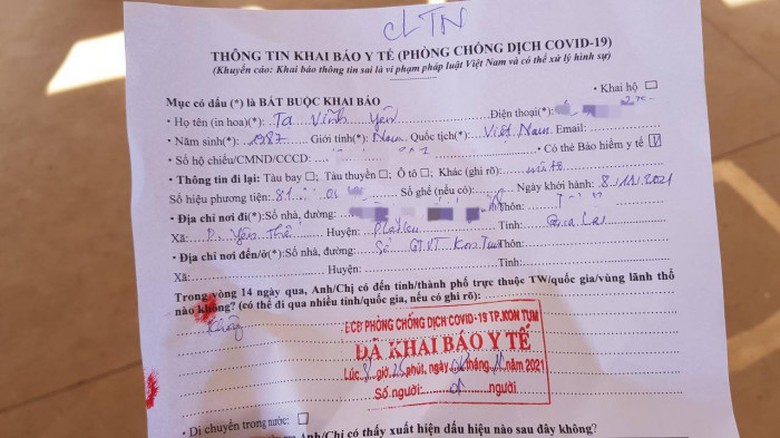 CLTN
THÔNG TIN KHAI BÁO Y TẾ (PHÒNG CHỐNG DỊCH COVID-19)
(Khuyến cáo: Khai báo thông tin sai là vi phạm pháp luật Việt Nam và có thể xử lý hình sự)
Khai hộ
Mục có dấu (*) là BẮT BUỘC KHAI BÁO
• Họ tên (in hoa)(*): Tạ Vĩnh Yên Điện thoại(*):
• Năm sinh(*): 1987 Giới tính(*): Nam Quốc tịch(*): Việt Nam Email:
• Số hộ chiếu/CMND/CCCD: • Có thẻ Bảo hiểm y tế
• Thông tin đi lại: Tàu bay □; Tàu thuyền □; Ô tô □; Khác (ghi rõ):
Số hiệu phương tiện: 81 Số ghế (nếu có): Ngày khởi hành: 8/11/2021
• Địa chỉ nơi đi(*):Số nhà, đường: Thôn:
Xã: P. Yên Thế Huyện: Pleiku Tỉnh: Gia Lai
• Địa chỉ nơi đến/ở(*):Số nhà, đường: Sở GTVT Kon Tum Thôn:
Xã: Huyện: Tỉnh:
Trong vòng 14 ngày qua, Anh/Chị có đến tỉnh/thành phố trực thuộc TW/quốc gia/vùng lãnh thổ
nào không? (có thể đi qua nhiều tỉnh/quốc gia, nếu có ghi rõ):
Không
BCĐ PHÒNG CHỐNG DỊCH COVID-19 TP.KON TUM
ĐÃ KHAI BÁO Y TẾ
Lúc 8 giờ 25 phút, ngày tháng 11 năm 2021
Số người: 01 người.
Di chuyển trong nước: □
Anh/Chị có thấy xuất hiện dấu hiệu nào sau đây không?